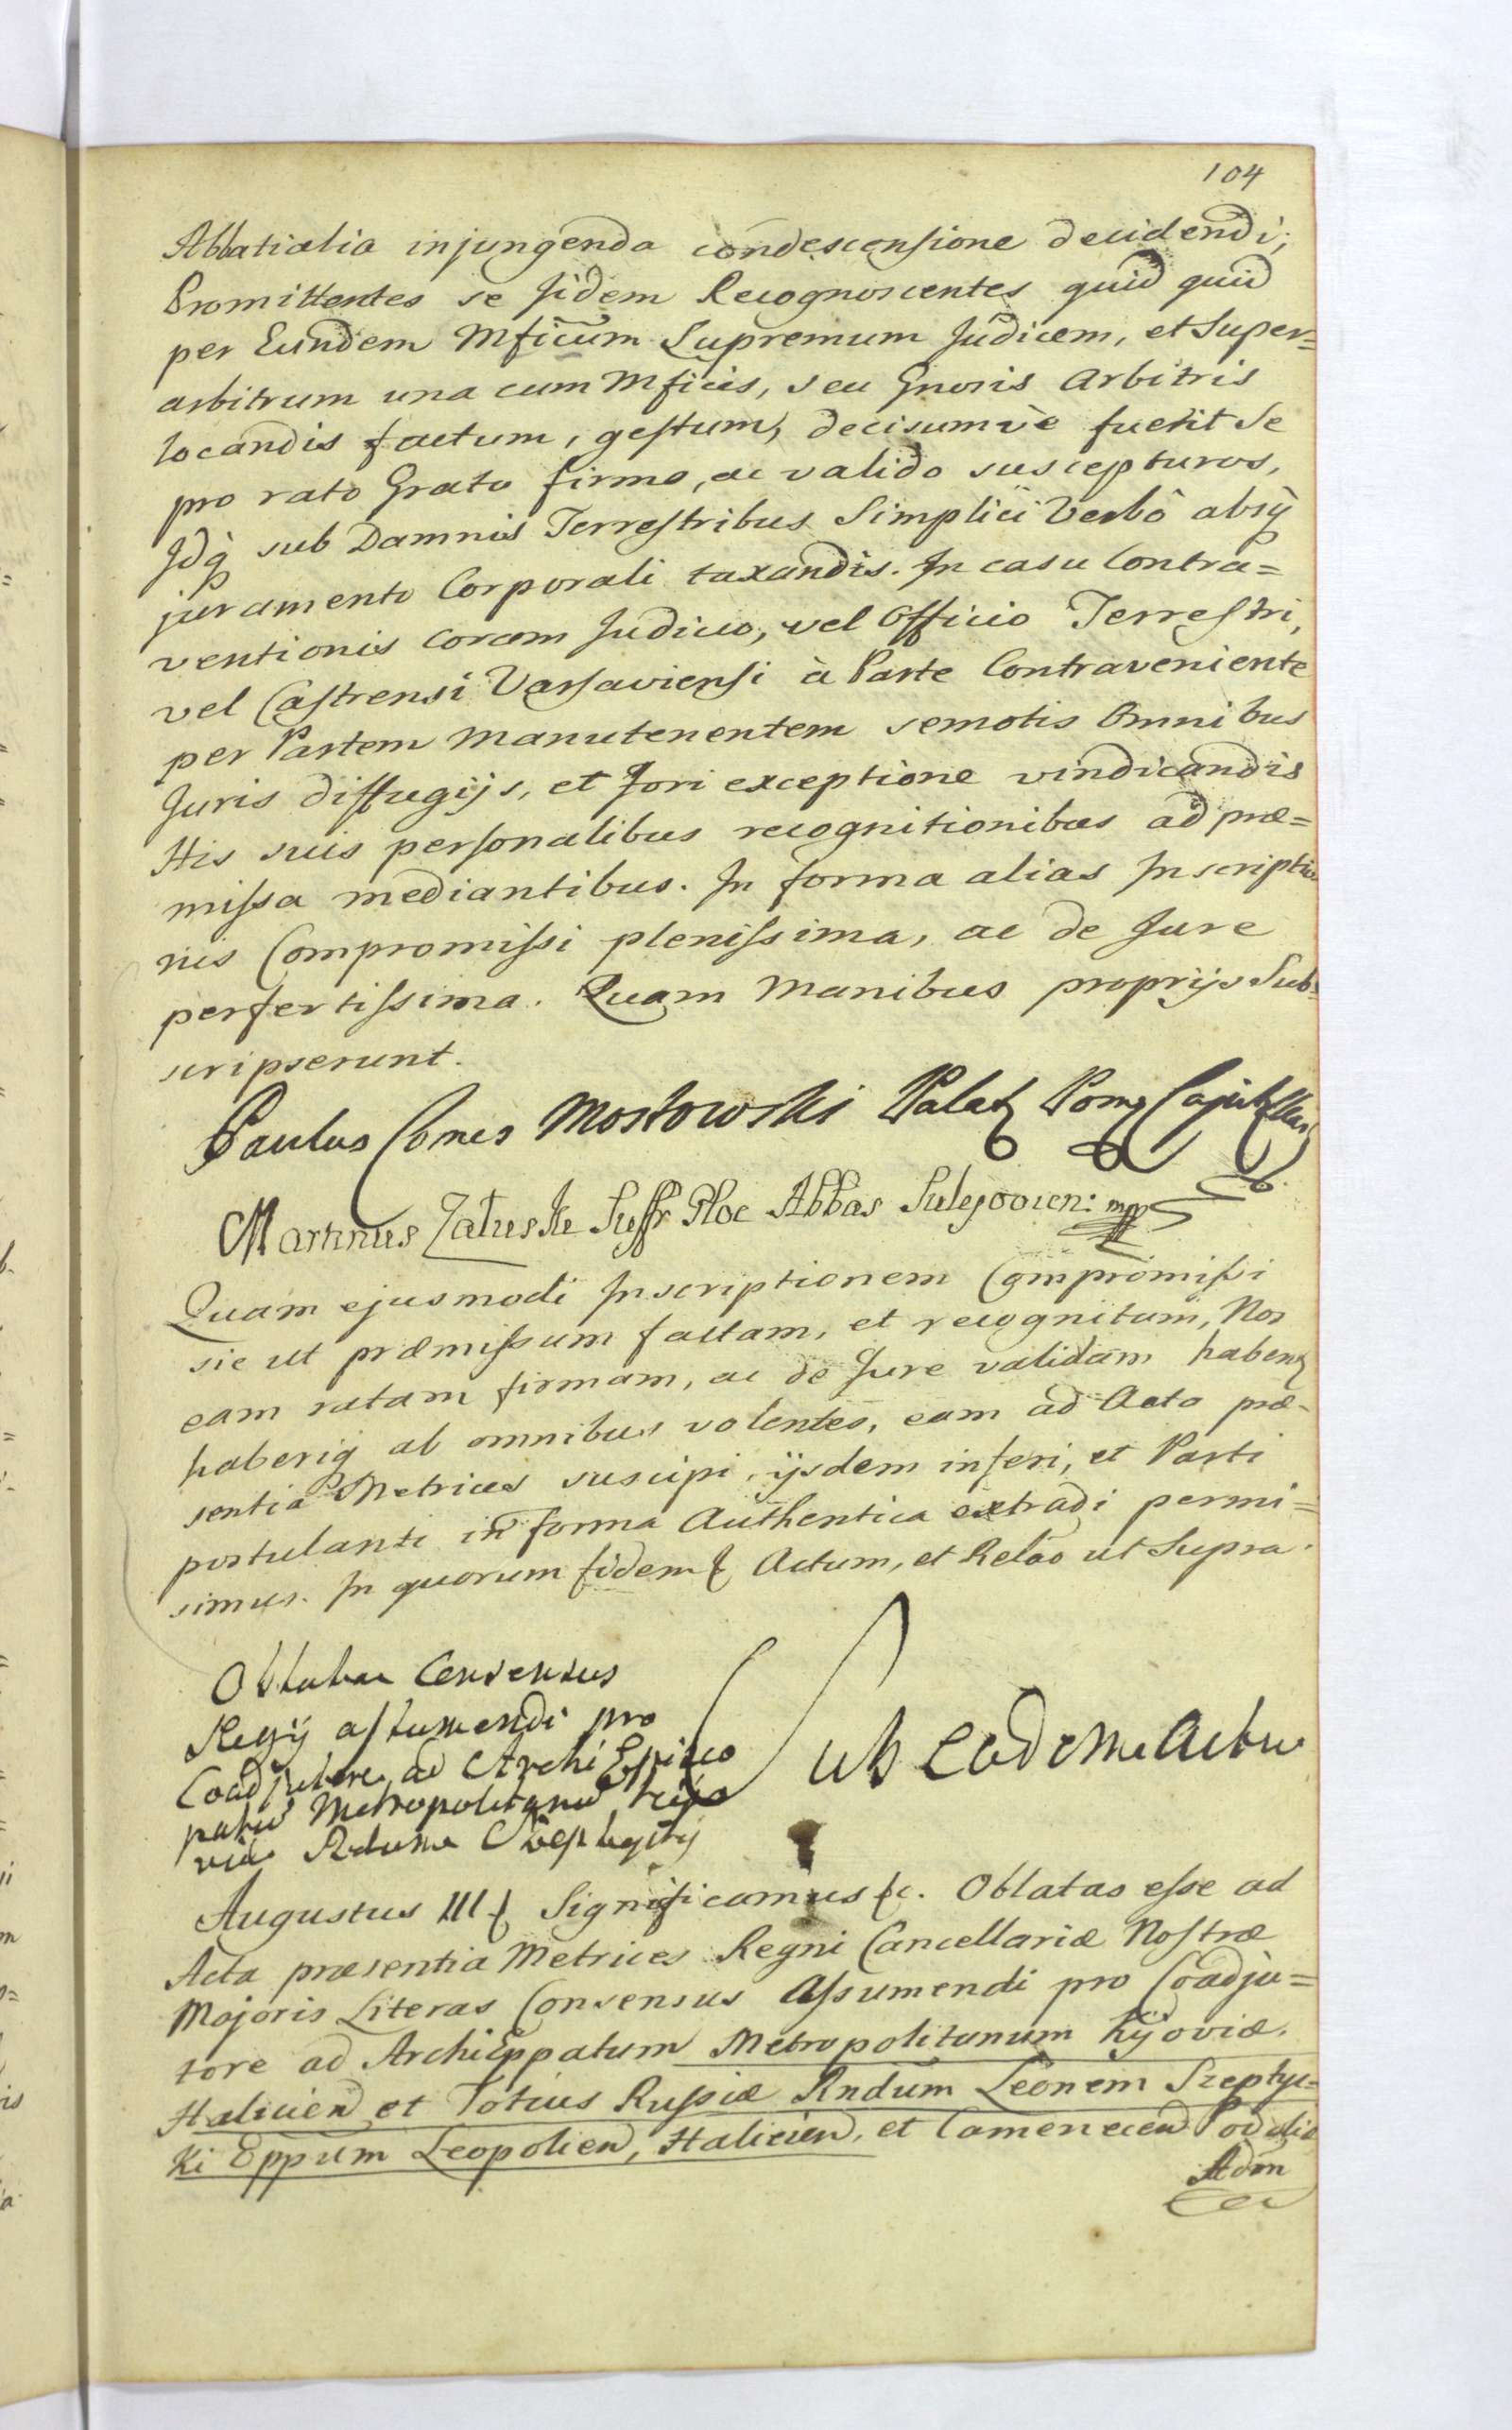 104
Abbatialia injungenda condescensione decidendi;
Promittentes se jidem Recognoscentes quid quid
per Eundem Mficum Supremum Judicem, et Super=
arbitrum una cum Mficis, seu Gnosis Arbitris
locandis factum, gestum, decisumvè fuerit Se
pro rato Grato firmo, ac valido suscepturos,
Jdq sub Damnis Terrestribus Simplici Verbô absq
juramento Corporali taxandis. In casu Contra=
ventionis coram Judicio, vel Officio Terrestri,
vel Castrensi Varsaviensi à Parte Contraveniente
per Partem Manutenentem semotis Omnibus
Juris diffugijs, et Fori exceptione vindicandis
His suis personalibus recognitionibus ad præ=
missa mediantibus. In forma alias Inscriptio
nis Compromissi plenissima, ac de Jure
perfertissima. Quam Manibus proprijs Sub=
scripserunt.
Paulus Comes Mostowski Palat Pom
Martinus Zaluski Suffr Ploc Abbas Sulejovien: mpp
Quam ejusmodi Inscriptionem Compromissi
sic ut præmissum factam, et recognitam, Nos
eam ratam firmam, ac de Jure validam haben
haberiq ab omnibus volentes, eam ad Acta præ-
sentia Metrices suscipi, ijsdem inseri, et Parti
postulanti in forma Authentica extradi permi=
simus. In quorum fidem & Actum, et Relao ut Supra.
Oblatae Consensus
Regij assumendi pro
Coadjutore ad Archi Episco
patu Metropolitanu Kijo
viae Rdum Szeptycki
Sub Eodem Actu
Augustus III & Significamus &c. Oblatas esse ad
Acta præsentia Metrices Regni Cancellariæ Nostræ
Majoris Literas Consensus Assumendi pro Coadju=
tore ad ArchiEppatum Metropolitanum Kijoviæ.
Halicien et Totius Russiæ Rndum Leonem Szeptyc=
ki Eppum Leopolien, Halicien, et Camenecen Podoliæ
Adm